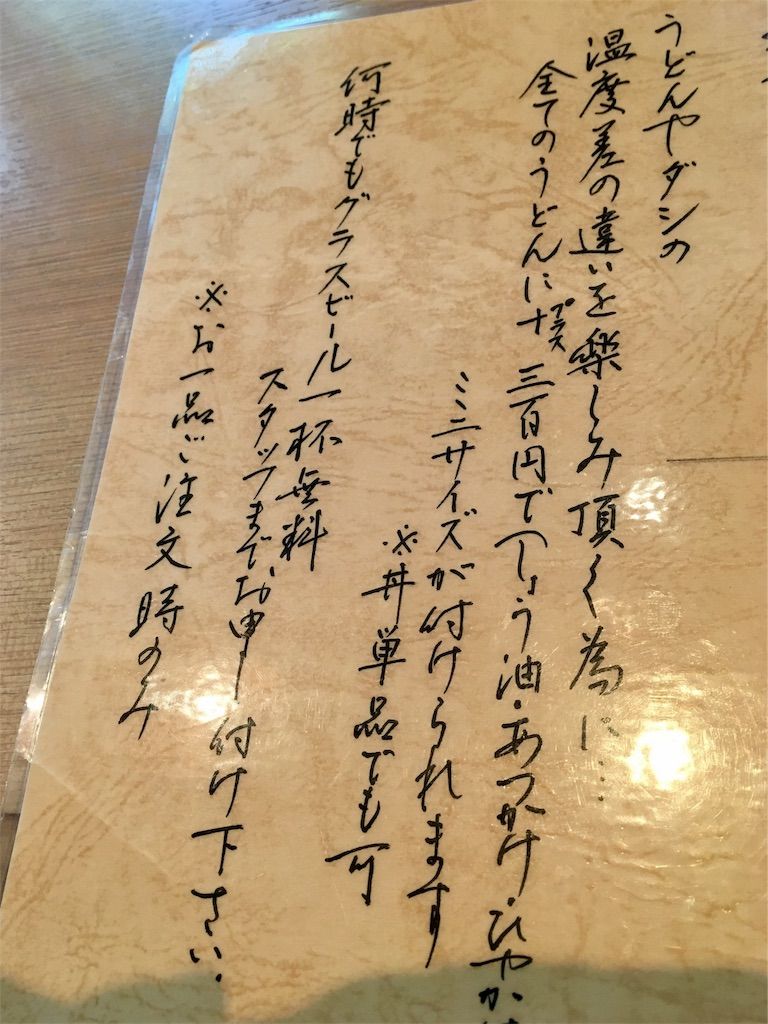 うどんやダシの
温度差の違いを楽しみ頂く為に…
全てのうどんに+プラス三百円で(しょう油・あつかけ・ひやか
ミニサイズが付けられます
※丼単品でも可
何時でもグラスビール一杯無料
スタッフまでお申し付け下さい。
※お一品ご注文時のみ